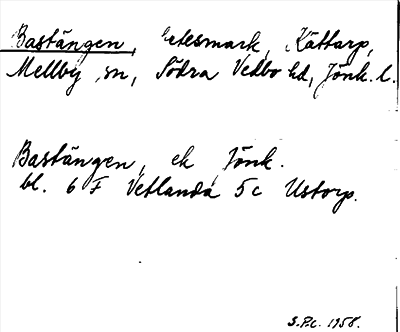 Bastängen, betesmark, Kättarp,
Mellby sn, Södra Vedbo hd, Jönk. l.
Bastängen, ek Jönk.
bl. 6 F Vetlanda 5c Ustorp.
S.P.c. 1958.